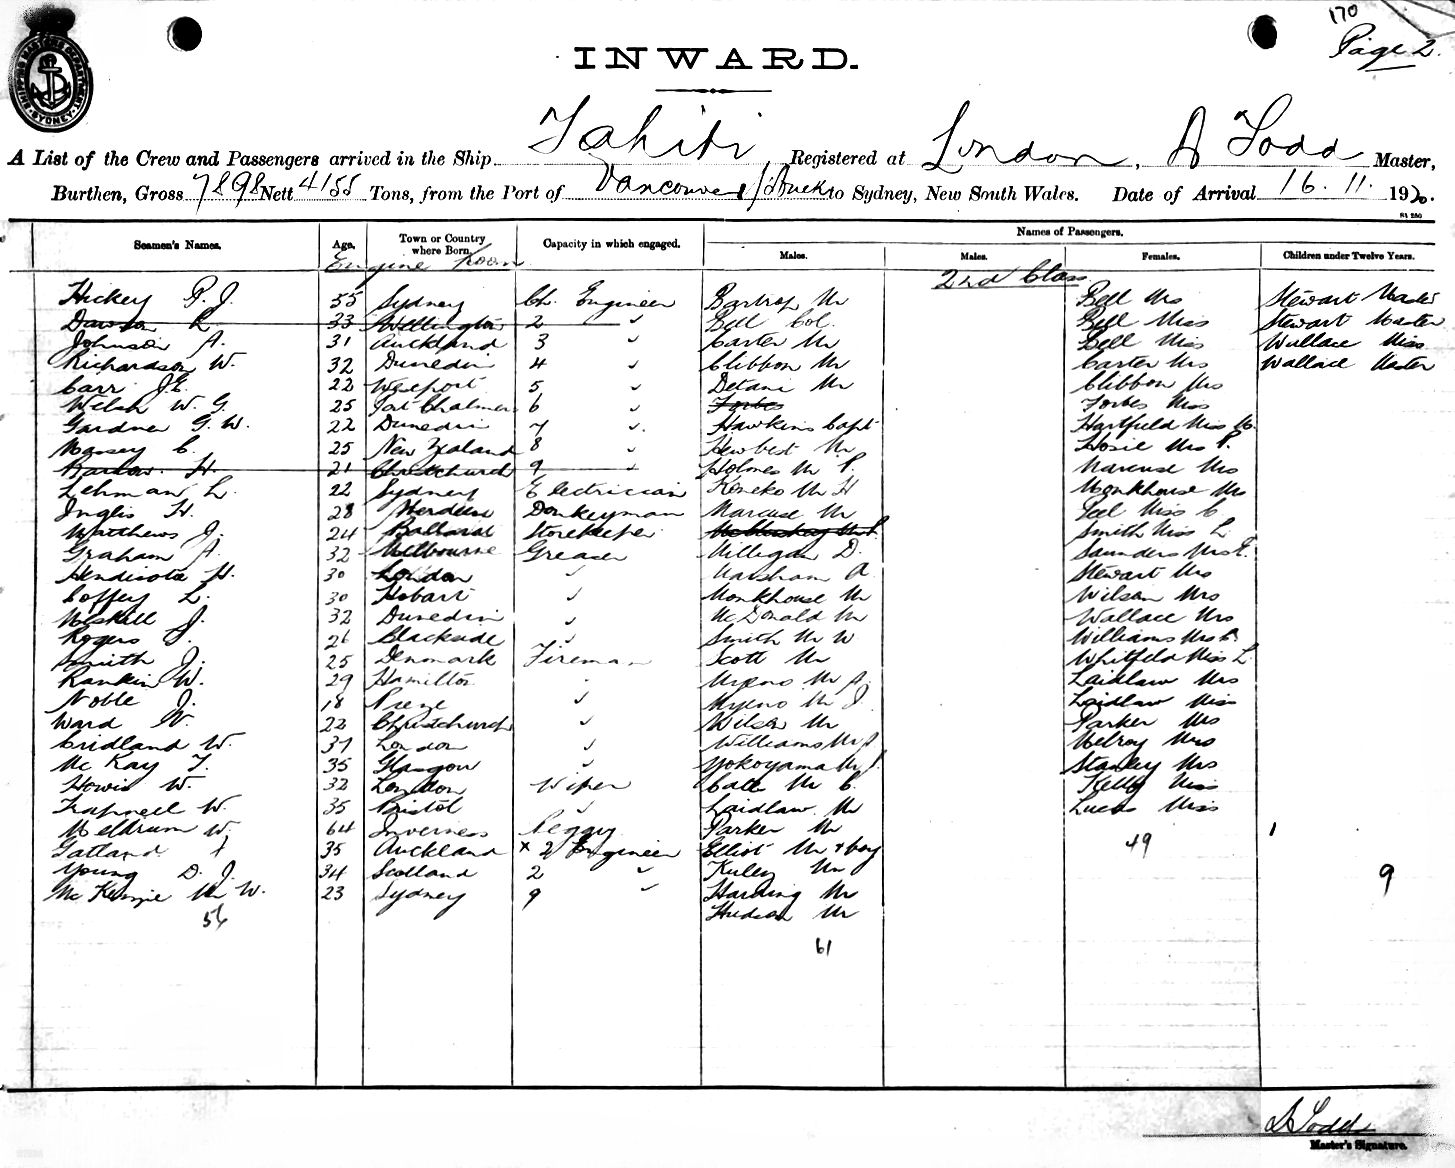 170
Page 2.
SHIPPING MASTERS DEPARTMENT SYDNEY
INWARD.
A List of the Crew and Passengers arrived in the Ship Tahiti, Registered at London, A Todd Master,
Burthen, Gross 7898 Nett 4155 Tons, from the Port of Vancouver to Sydney, New South Wales. Date of Arrival 16.11. 1920.
Seamen's Names. Age. Town or Country where Born. Capacity in which engaged. Names of Passengers.
Males. Males. Females. Children under Twelve Years.
Engine Room 2nd Class
Hickey P. J. 55 Sydney Ch. Engineer Bartrop Mr Bell Mrs Stewart Master
Dawson L 33 Wellington 2 " Bell Col. Bell Miss Stewart Master
Johnson A. 31 Auckland 3 " Carter Mr Bell Miss Wallace Miss
Richardson W. 32 Dunedin 4 " Clibbon Mr Carter Mrs Wallace Master
Carr J.E. 22 Westport 5 " Detani Mr Clibbon Mrs
Welsh W. G. 25 Port Chalmers 6 " Forbes Forbes Miss
Gardner G. W. 22 Dunedin 7 " Hawkins Capt Hartfield Miss
Massey C. 25 New Zealand 8 " Hewbest Mr Hosie Mrs P.
Barlow H. 21 Christchurch 9 " Holmes Mr P. Marcuse Mrs
Lehman L. 22 Sydney Electrician Keneko Mr H Monkhouse Mrs
Inglis H. 28 Aberdeen Donkeyman Marcuse Mr Peel Miss C
Matthews J. 24 Ballarat Storekeeper Smith Miss L
Graham A. 32 Melbourne Greaser Milligan D. Saunders Mrs E.
Hendicott H. 30 London " Marsham A. Stewart Mrs
Coffey L. 30 Hobart " Monkhouse Mr Wilson Mrs
Miskell J. 32 Dunedin " McDonald Mr Wallace Mrs
Rogers J. 26 Blackside " Smith Mr W Williams Mrs
Smith J. 25 Denmark Fireman Scott Mr Whitfeld Miss L.
Rankin W. 29 Hamilton " Myeno Mr A. Laidlaw Mrs
Noble J. 18 " Myeno Mr J. Laidlaw Miss
Ward W. 22 Christchurch " Wilson Mr Parker Mrs
Cridland W. 37 London " Williams Mr Melroy Mrs
McKay T. 35 Glasgow " Yokoyama Mr Stanley Mrs
Howis W. 32 London Wiper Cate Mr C. Kelly Miss
Trapnell W. 35 Bristol " Laidlaw Mr Lucas Miss
Meldrum W. 64 Inverness Peggy Parker Mr
Gatland 35 Auckland x 2 Engineer Elliot Mr & boy 49
Young D. J. 34 Scotland 2 " Kuley Mr 9
McKenzie Mr W. 23 Sydney 9 " Harding Mr
56 Hudson Mr
61
A Todd
Master's Signature.